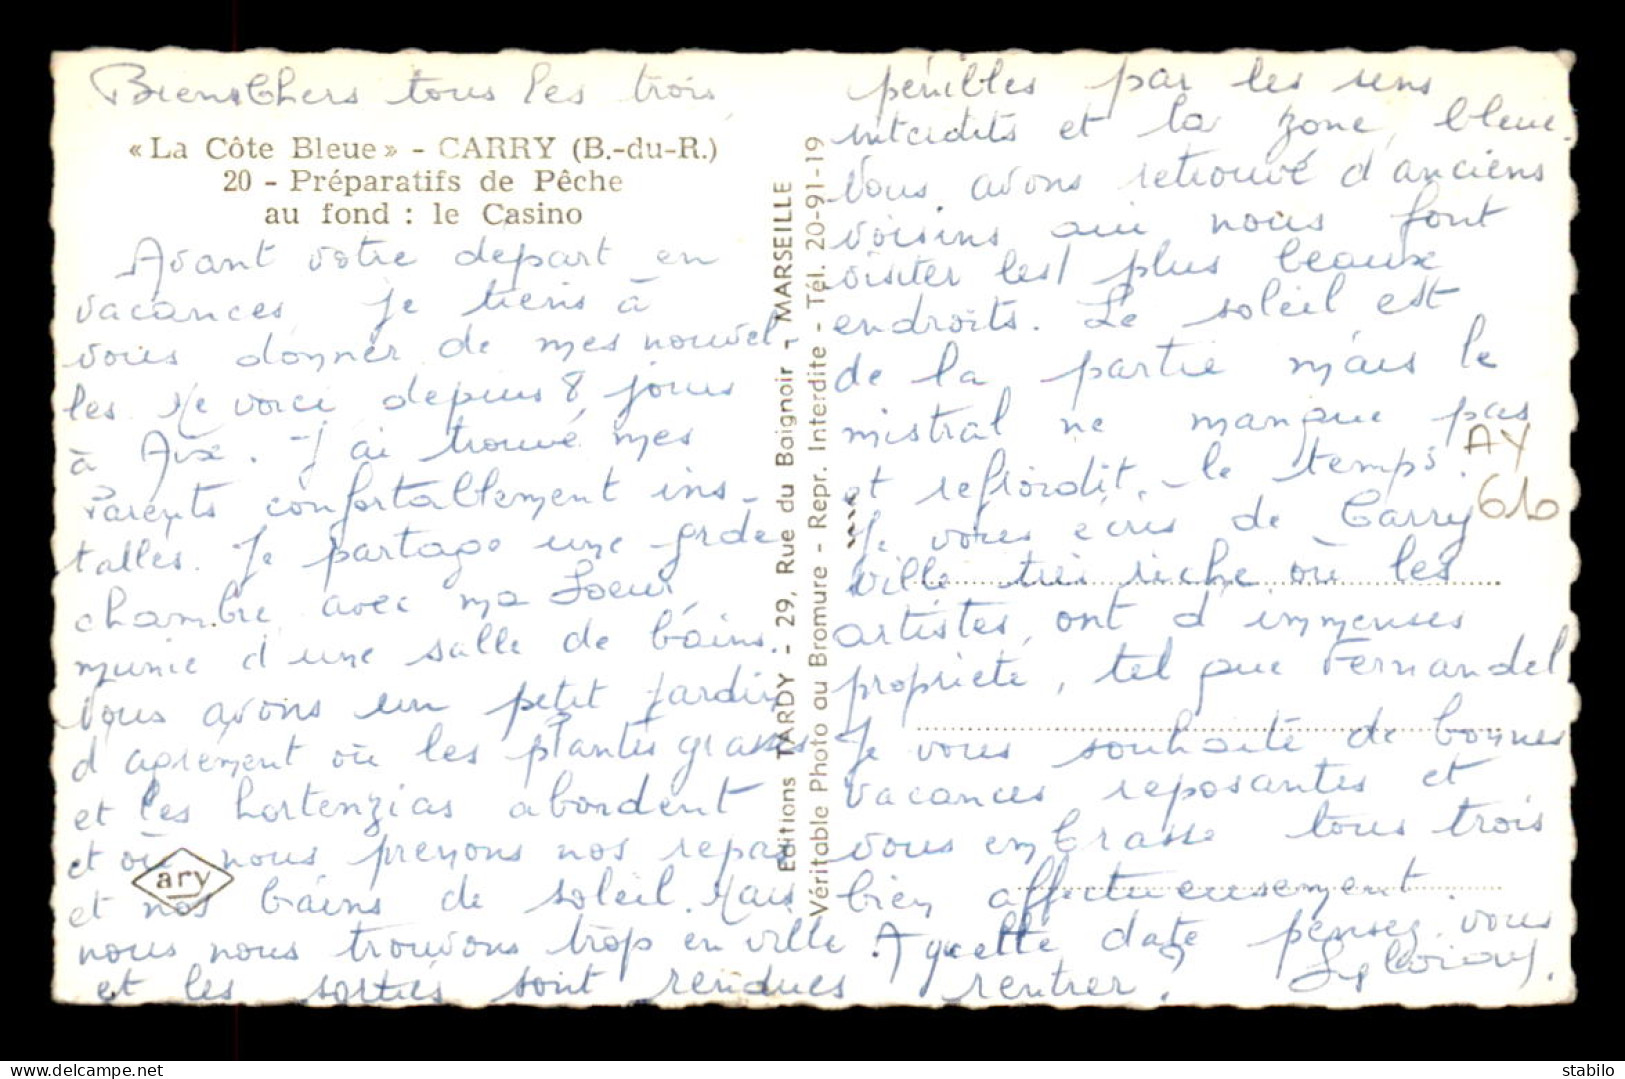 Biens Chers tous les trois,
« La Côte Bleue » - CARRY (B.-du-R.)
20 - Préparatifs de Pêche
au fond : le Casino
Avant votre départ en
vacances je tiens à
vous donner de mes nouvel
les. Me voici depuis 8 jours
à Aix. J'ai trouvé mes
Parents confortablement ins-
tallés. Je partage une grde
chambre avec ma Soeur
munie d'une salle de bains.
Nous avons un petit jardin
d'agrément où les plantes grasses
et les hortenzias abondent
et où nous prenons nos repas
et nos bains de soleil. Mais
nous nous trouvons trop en ville
et les sorties sont rendues
ary
Editions TARDY - 29, Rue du Baignoir - MARSEILLE
Véritable Photo au Bromure - Repr. Interdite - Tél. 20-91-19
pénibles par les sens
interdits et la zone bleue.
Nous avons retrouvé d'anciens
voisins qui nous font
visiter les plus beaux
endroits. Le soleil est
de la partie mais le
mistral ne manque pas
et refroidit le temps.
Je vous écris de Carry
ville très riche où les
artistes ont d'immenses
propriété, tel que Fernandel
Je vous souhaite de bonnes
vacances reposantes et
vous embrasse tous trois
bien affectueusement.
A quelle date pensez vous
rentrer?
AY
610
stabilo